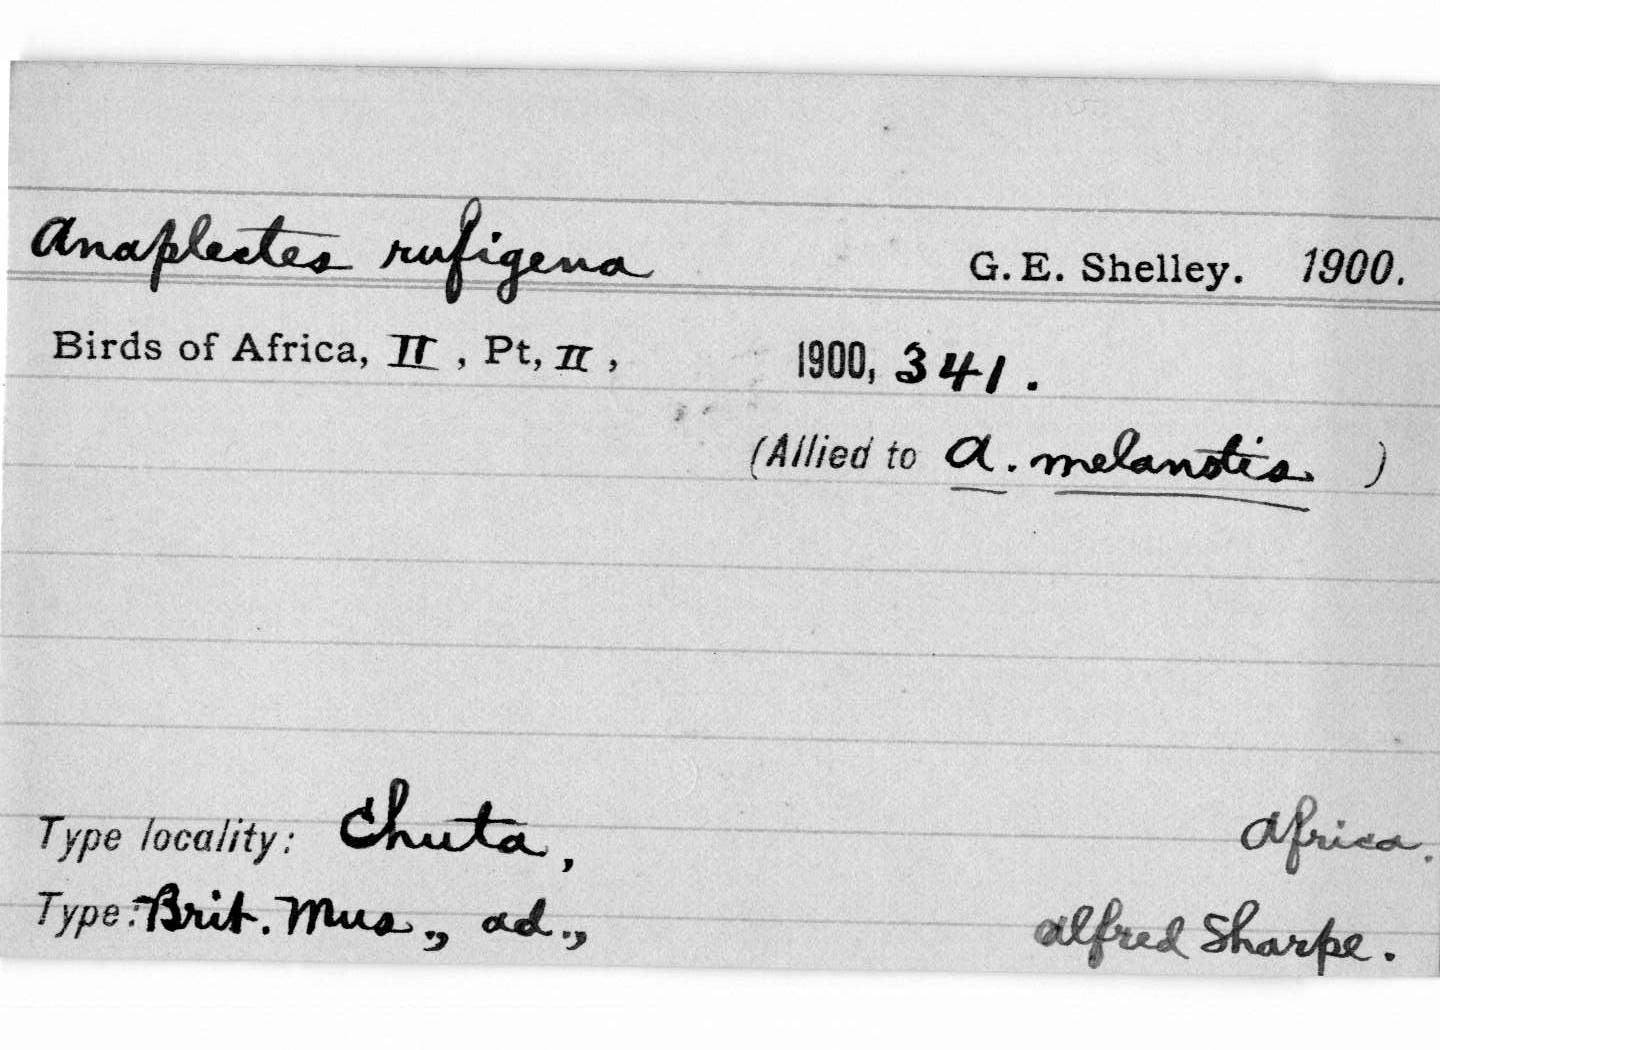 Anaplectes rufigena G. E. Shelley. 1900.
Birds of Africa, II, Pt, II, 1900, 341.
(Allied to A. melanotis )
Type locality: Chuta, Africa.
Type: Brit. Mus., ad., Alfred Sharpe.